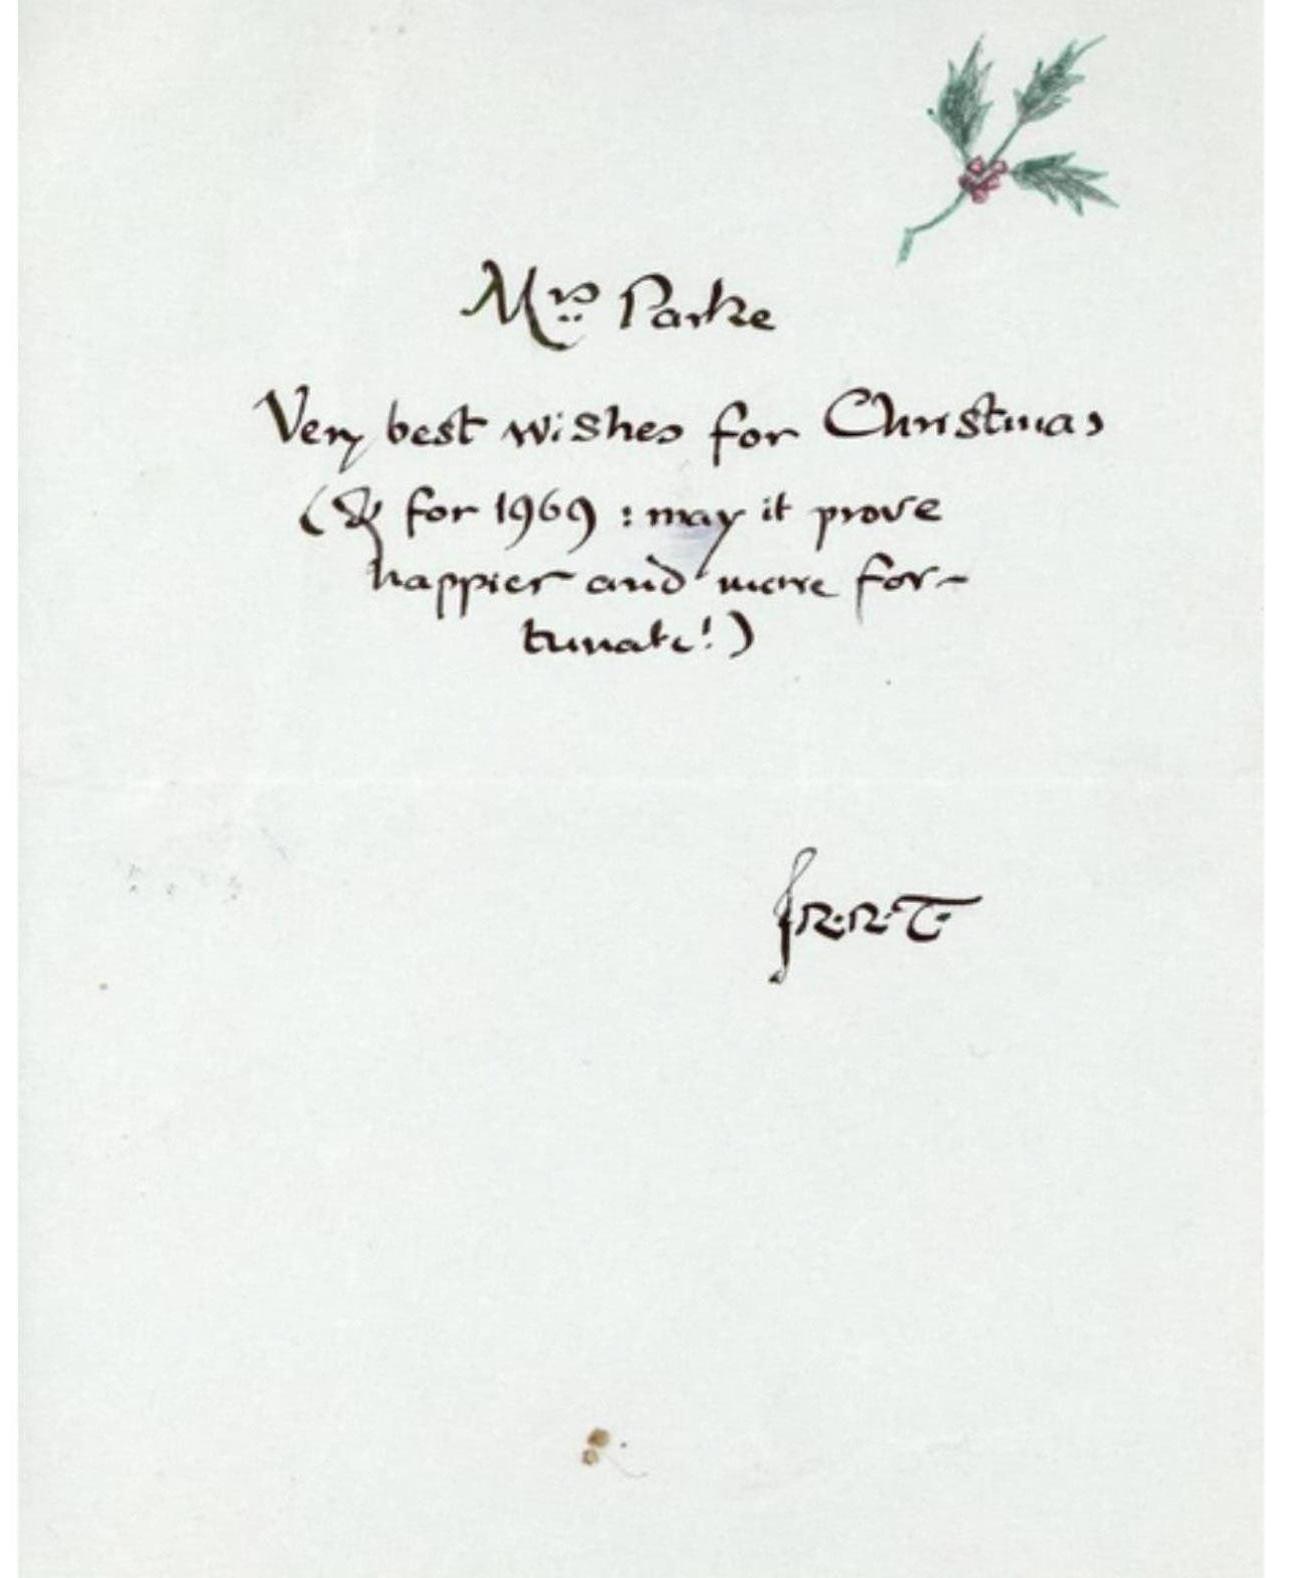 Mrs Parke
Very best wishes for Christmas
(& for 1969 : may it prove
happier and more for-
tunate!)
J.R.R.T.